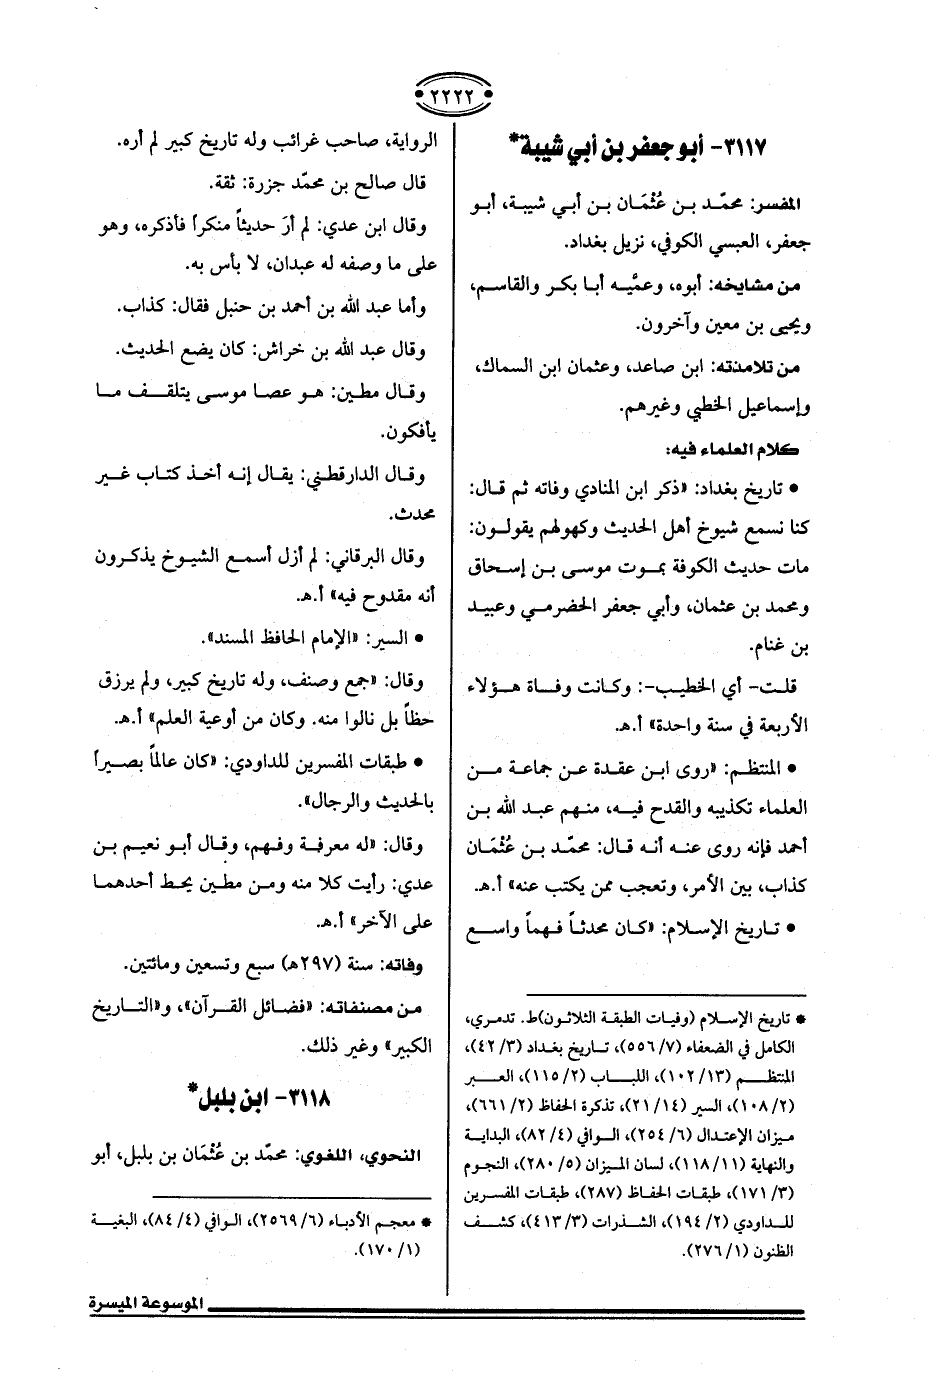 ٢٢٢٢
٣١١٧- أبو جعفر بن أبي شيبة*
المفسر: محمّد بن عُثْمَان بن أبي شيبة، أبو
جعفر، العبسي الكوفي، نزيل بغداد.
من مشايخه: أبوه، وعمَّيه أبا بكر والقاسم،
ويحيى بن معين وآخرون.
من تلامذته: ابن صاعد، وعثمان ابن السماك،
وإسماعيل الخطبي وغيرهم.
كلام العلماء فيه:
• تاريخ بغداد: «ذكر ابن المنادي وفاته ثم قال:
كنا نسمع شيوخ أهل الحديث وكهولهم يقولون:
مات حديث الكوفة بموت موسى بن إسحاق
ومحمد بن عثمان، وأبي جعفر الحضرمي وعبيد
بن غنام.
قلت- أي الخطيب-: وكانت وفاة هؤلاء
الأربعة في سنة واحدة» أ.هـ.
• المنتظم: «روى ابن عقدة عن جماعة من
العلماء تكذيبه والقدح فيه، منهم عبد الله بن
أحمد فإنه روى عنه أنه قال: محمّد بن عُثْمَان
كذاب، بين الأمر، وتعجب ممن يكتب عنه» أ.هـ.
• تاريخ الإسلام: «كان محدثاً فهماً واسع
* تاريخ الإسلام (وفيات الطبقة الثلاثون)ط. تدمري،
الكامل في الضعفاء (٧/ ٥٥٦)، تاريخ بغداد (٣/ ٤٢)،
المنتظم (١٣/ ١٠٢)، اللباب (٢/ ١١٥)، العبر
(٢/ ١٠٨)، السير (١٤/ ٢١)، تذكرة الحفاظ (٢/ ٦٦١)،
ميزان الإعتدال (٦/ ٢٥٤)، الوافي (٤/ ٨٢)، البداية
والنهاية (١١/ ١١٨)، لسان الميزان (٥/ ٢٨٠)، النجوم
(٣/ ١٧١)، طبقات الحفاظ (٢٨٧)، طبقات المفسرين
للداودي (٢/ ١٩٤)، الشذرات (٣/ ٤١٣)، كشف
الظنون (١/ ٢٧٦).
الرواية، صاحب غرائب وله تاريخ كبير لم أره.
قال صالح بن محمّد جزرة: ثقة.
وقال ابن عدي: لم أرَ حديثاً منكراً فأذكره، وهو
على ما وصفه له عبدان، لا بأس به.
وأما عبد الله بن أحمد بن حنبل فقال: كذاب.
وقال عبد الله بن خراش: كان يضع الحديث.
وقال مطين: هو عصا موسى يتلقف ما
يأفكون.
وقال الدارقطني: يقال إنه أخذ كتاب غير
محدث.
وقال البرقاني: لم أزل أسمع الشيوخ يذكرون
أنه مقدوح فيه» أ.هـ.
• السير: «الإمام الحافظ المسند».
وقال: «جمع وصنف، وله تاريخ كبير، ولم يرزق
حظاً بل نالوا منه. وكان من أوعية العلم» أ.هـ.
• طبقات المفسرين للداودي: «كان عالماً بصيراً
بالحديث والرجال».
وقال: «له معرفة وفهم، وقال أبو نعيم بن
عدي: رأيت كلا منه ومن مطين يحط أحدهما
على الآخر» أ.هـ.
وفاته: سنة (٢٩٧هـ) سبع وتسعين ومائتين.
من مصنفاته: «فضائل القرآن»، و«التاريخ
الكبير» وغير ذلك.
٣١١٨- ابن بلبل*
النحوي، اللغوي: محمّد بن عُثْمَان بن بلبل، أبو
* معجم الأدباء (٦/ ٢٥٦٩)، الوافي (٤/ ٨٤)، البغية
(١/ ١٧٠).
الموسوعة الميسرة